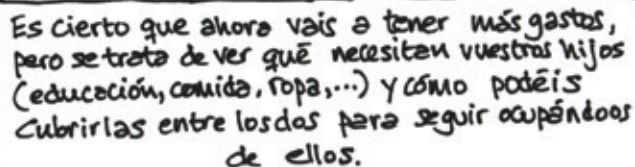 Es cierto que ahora vais a tener más gastos,
pero se trata de ver qué necesitan vuestros hijos
(educación, comida, ropa,...) y cómo podéis
cubrirlas entre los dos para seguir ocupándoos
de ellos.